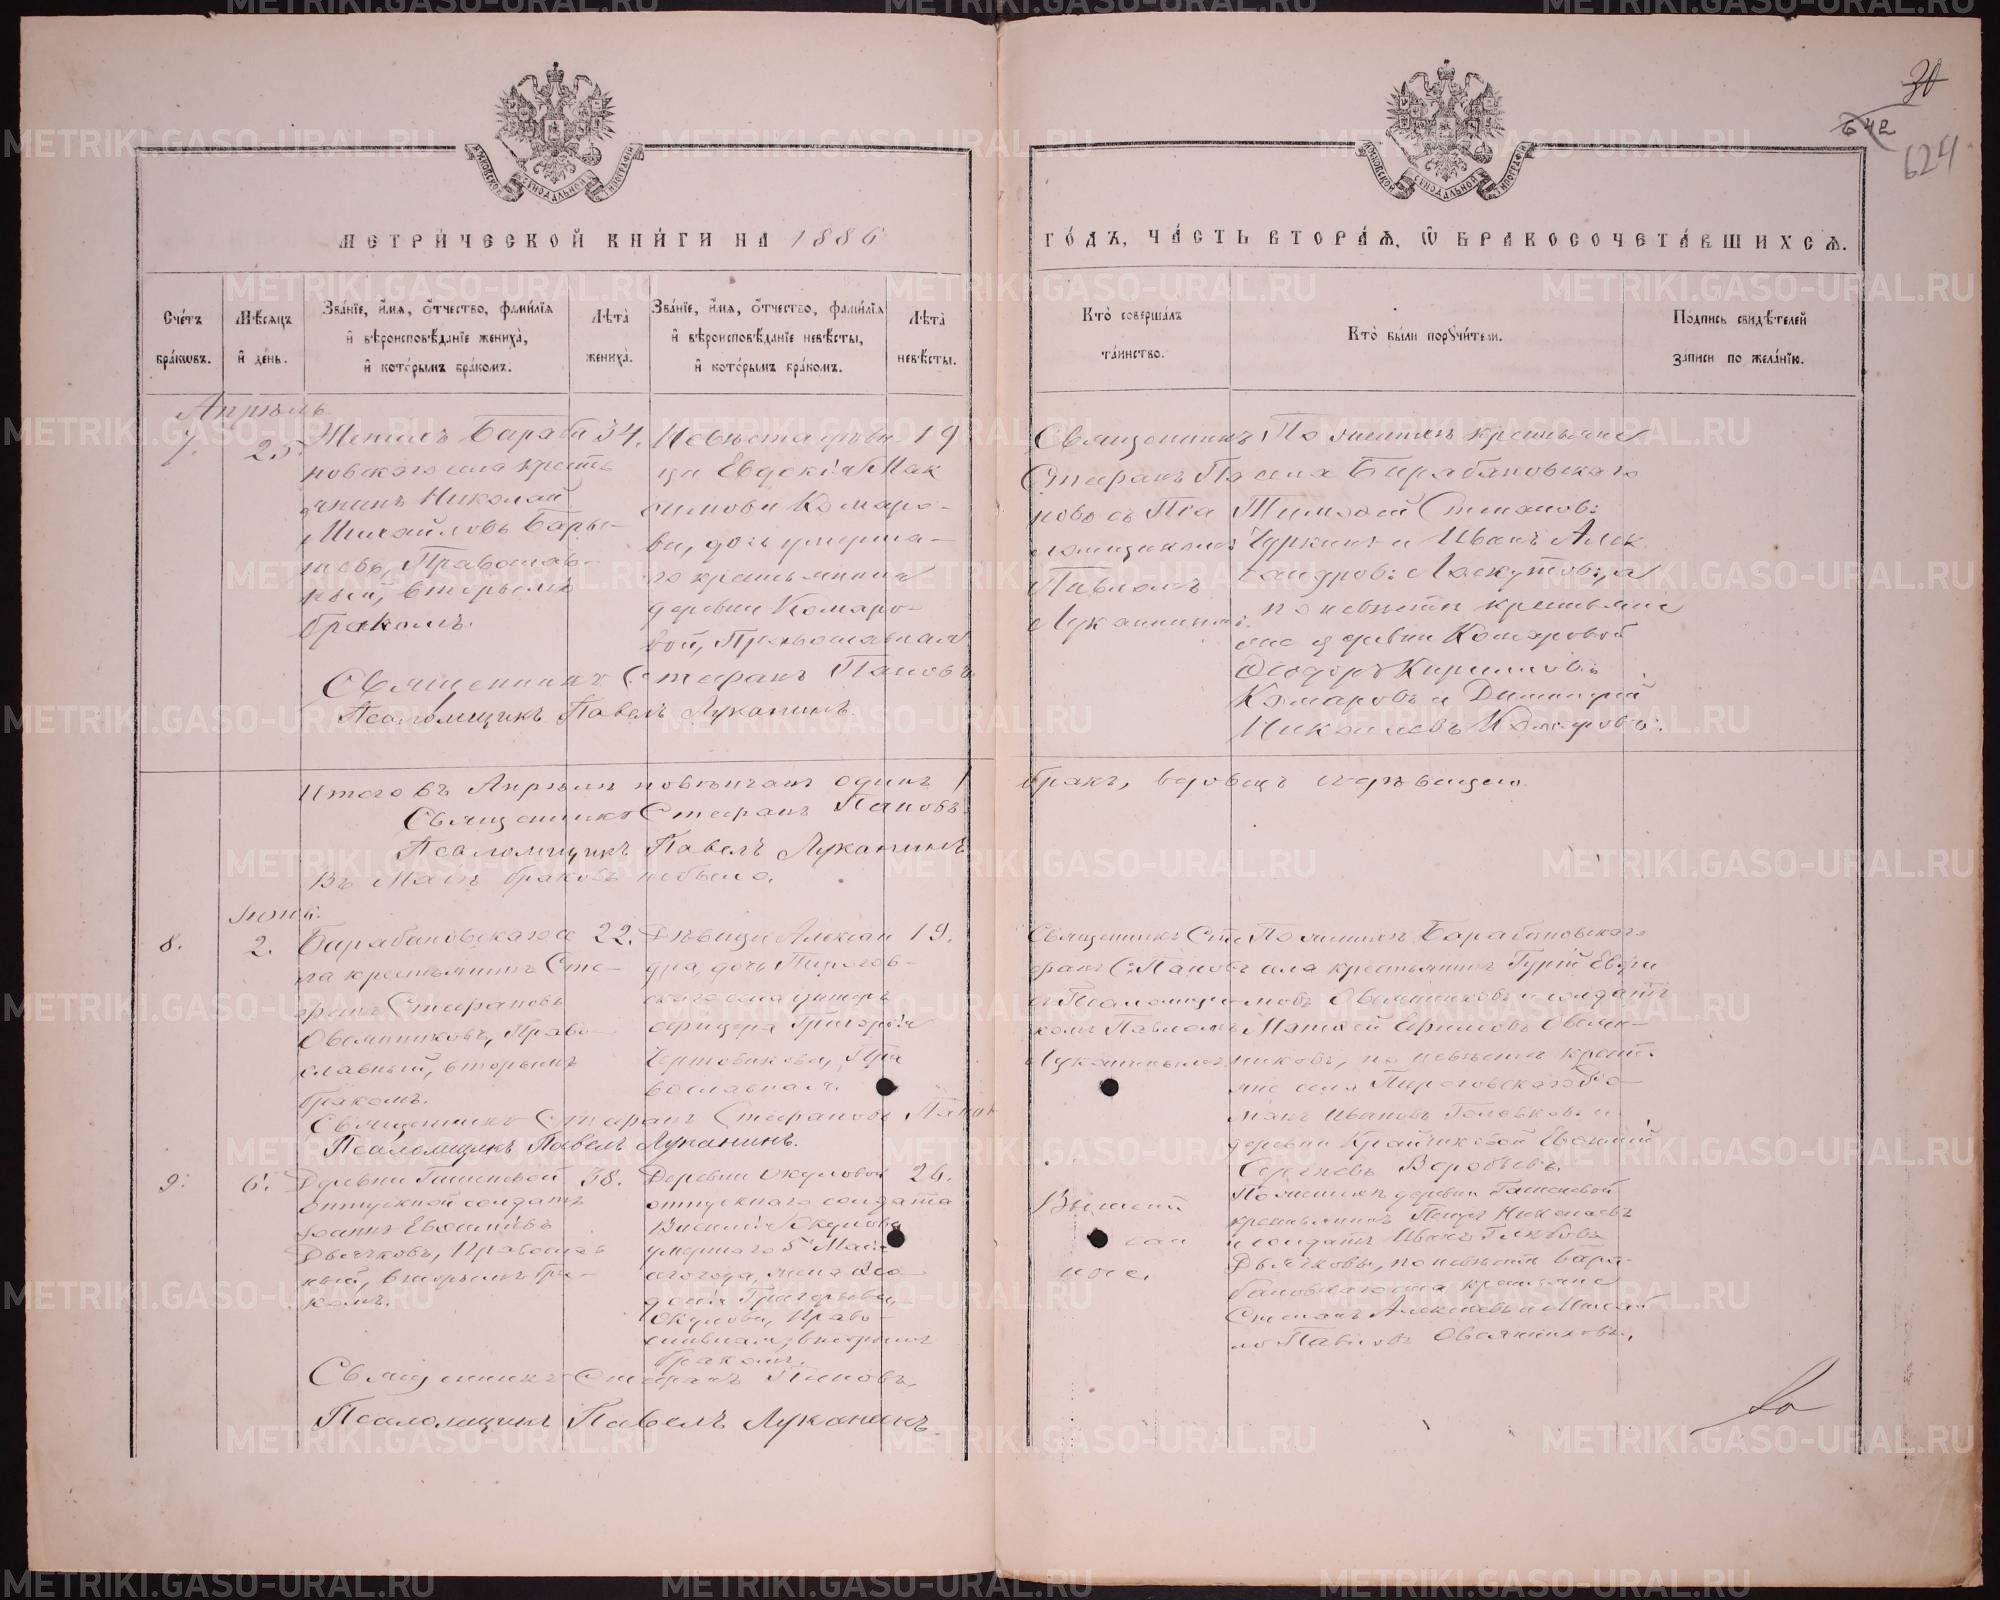 30
642
624
МЕТРИЧЕСКОЙ КНИГИ НА 1886
ГОДЪ, ЧАСТЬ ВТОРАЯ, Ѡ БРАКОСОЧЕТАВШИХСЯ.
Счетъ браковъ.
Мѣсяцъ и день.
Званіе, имя, отчество, фамилія и вѣроисповѣданіе жениха, и которымъ бракомъ.
Лѣта жениха.
Званіе, имя, отчество, фамилія и вѣроисповѣданіе невѣсты, и которымъ бракомъ.
Лѣта невѣсты.
Кто совершалъ таинство.
Кто были поручители.
Подпись свидѣтелей записи по желанію.
Апрѣль
7.
25.
Женихъ Бараба
новскаго села кресть
янинъ Николай
Михайловъ
Православ-
ный, вторымъ
бракомъ.
34.
Невѣста дѣви
ца Евдокія Мак
симова Комаро-
ва, дочь умерша-
го крестьянина
деревни Комаро-
вой, Православная
19
Священникъ
Стефанъ Па
новъ съ Пса
ломщикомъ
Павломъ
Луканинымъ.
По женихѣ крестьяне
села Барабановскаго
Тимофей Степанов:
Чуркинъ и Иванъ Алек
сандров: Лоскутов:, а
по невѣстѣ крестьяне
деревни Комаровой
Ѳеодоръ Кириллов:
Комаровъ и Димитрій
Николаевъ Комаровъ.
Священникъ Стефанъ Пановъ
Псаломщикъ Павелъ Луканинъ.
Итого въ Апрѣлѣ повѣнчанъ одинъ 1
бракъ, вдовецъ съ дѣвицею.
Священникъ Стефанъ Пановъ.
Псаломщикъ Павелъ Луканинъ
Въ Маѣ браковъ небыло.
Іюнь.
8.
2.
Барабановскаго се
ла крестьянинъ Сте-
фанъ Стефановъ
Овсянниковъ, Право
славный, вторымъ
бракомъ.
22.
Дѣвица Алексан
дра, дочь Пирогов-
скаго села унтеръ
офицера Григорія
Чертовикова, Пра
вославная.
19.
Священникъ Сте
фанъ С. Пановъ
съ Псаломщи
комъ Павломъ
Луканинымъ
По женихѣ Барабановскаго
села крестьянинъ Гурій Евфи
мовъ Овсянниковъ и солдатъ
Матѳей Ефимовъ Овсян-
никовъ, по невѣстѣ кресть
яне села Пироговскаго Ро-
манъ Ивановъ Головков: и
деревни Крайчиковой Евѳимій
Сергѣевъ Воробьевъ.
Священникъ Стефанъ Стефановъ Панов
Псаломщикъ Павелъ Луканинъ.
9.
6.
Деревни Гашеневой
отпускной солдатъ
Іоаннъ Евѳиміевъ
Дьячковъ, Православ
ный, вторымъ бра-
комъ.
38.
Деревни Окуловой
отпускнаго солдата
Василія Окулова
умершаго 5 Мая
сего года, жена Ѳео
досія Григорьева
Окулова, Право-
славная, вторымъ
бракомъ.
26.
Вышепи
сан
ные.
По женихѣ деревни Гашеневой
крестьянинъ Петръ Николаевъ
и солдатъ Иванъ Глѣбовъ
Дьячковы, по невѣстѣ Бара-
бановскаго села крестьяне
Степанъ Алексѣевъ и Михай
ло Павловъ Овсянниковы.
Священникъ Стефанъ Пановъ,
Псаломщикъ Павелъ Луканинъ.
METRIKI.GASO-URAL.RU